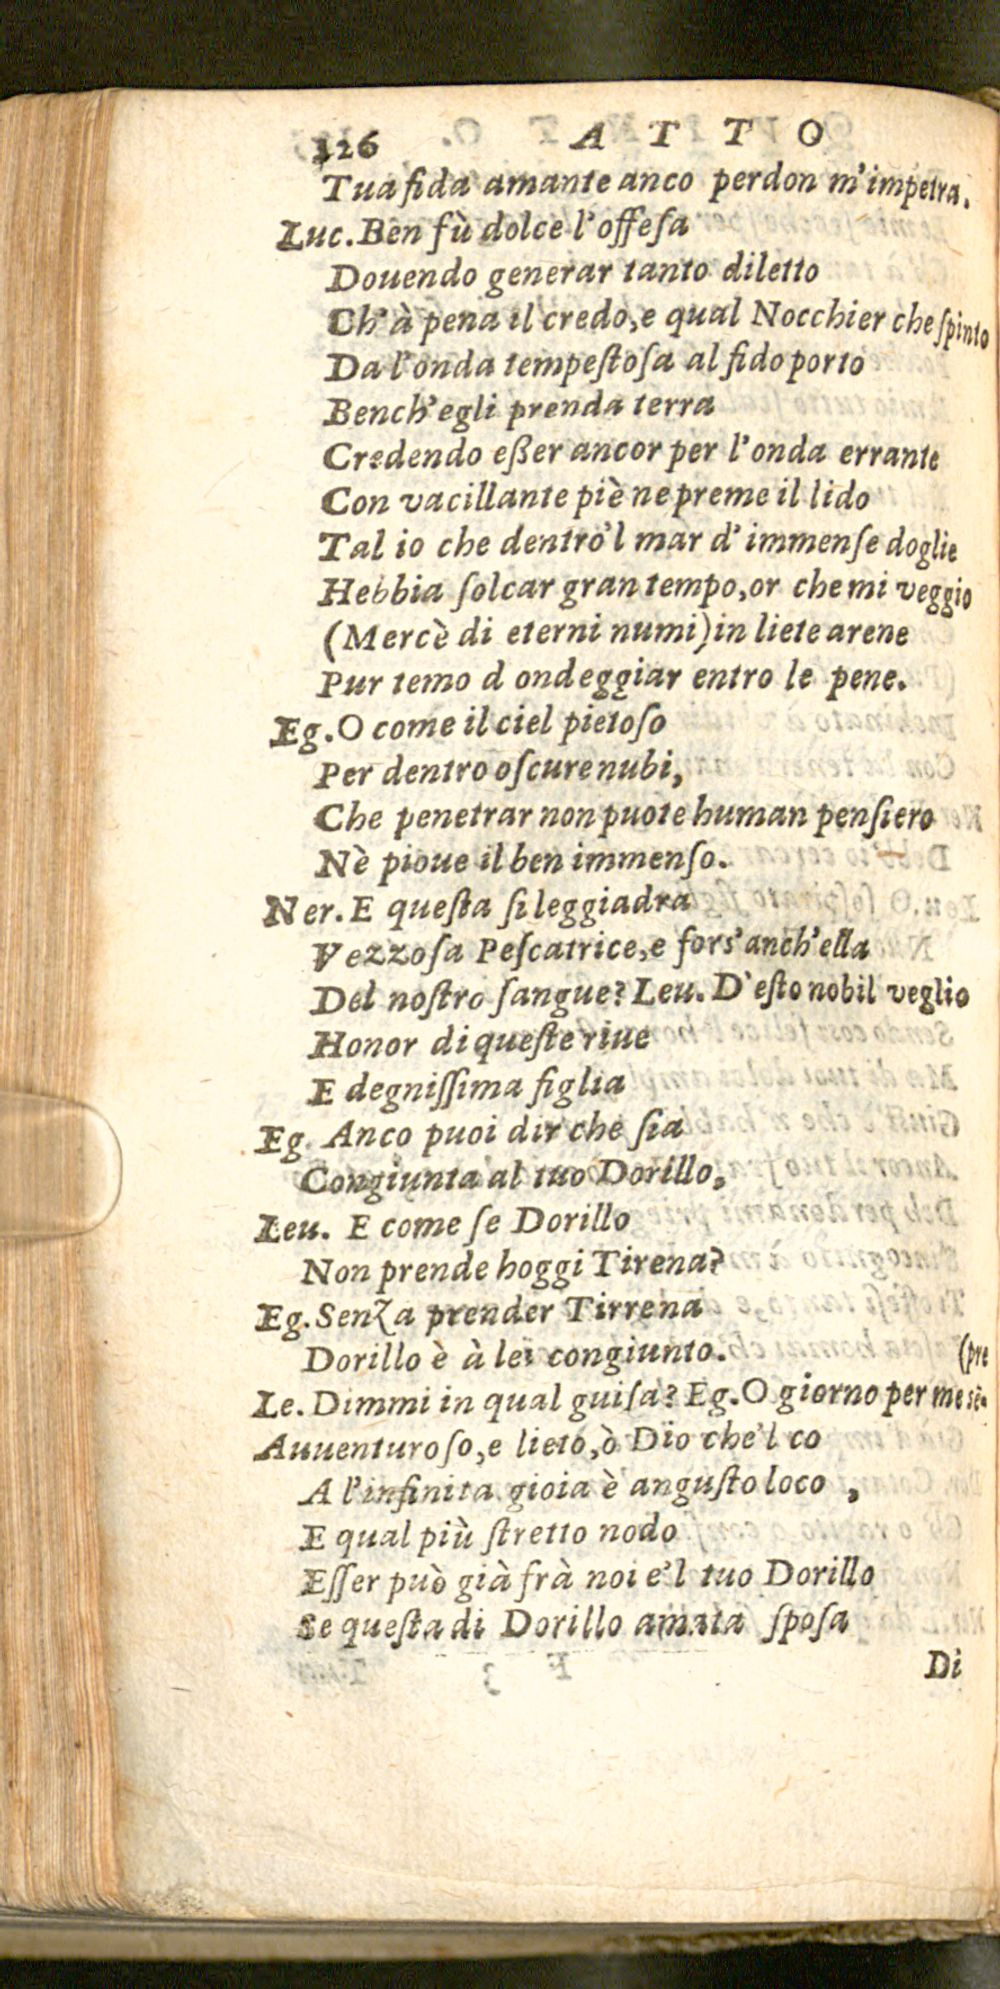 126 ATTO
Tua fida amante anco perdon m'impetra.
Luc. Ben fù dolce l'offeſa
Douendo generar tanto diletto
Ch'à pena il credo, e qual Nocchier che ſpinto
Da l'onda tempeſtoſa al fido porto
Bench'egli prenda terra
Credendo eßer ancor per l'onda errante
Con vacillante piè ne preme il lido
Tal io che dentro'l mar d'immenſe doglie
Hebbia ſolcar gran tempo, or che mi veggio
(Mercè di eterni numi) in liete arene
Pur temo d ondeggiar entro le pene.
Eg. O come il ciel pietoſo
Per dentro oſcure nubi,
Che penetrar non puote human penſiero
Nè pioue il ben immenſo.
Ner. E queſta ſi leggiadra
Vezzoſa Peſcatrice, e fors'anch'ella
Del noſtro ſangue? Leu. D'eſto nobil veglio
Honor di queſte riue
E degniſſima figlia
Eg. Anco puoi dir che ſia
Congiunta al tuo Dorillo,
Leu. E come ſe Dorillo
Non prende hoggi Tirena?
Eg. Senza prender Tirrena
Dorillo è à lei congiunto. (pre
Le. Dimmi in qual guiſa? Eg. O giorno per me sē-
Auuenturoſo, e lieto, ò Dio che'l co
A l'infinita gioia è anguſto loco,
E qual più ſtretto nodo
Eſſer può già frà noi e'l tuo Dorillo
Se queſta di Dorillo amata ſpoſa
Di